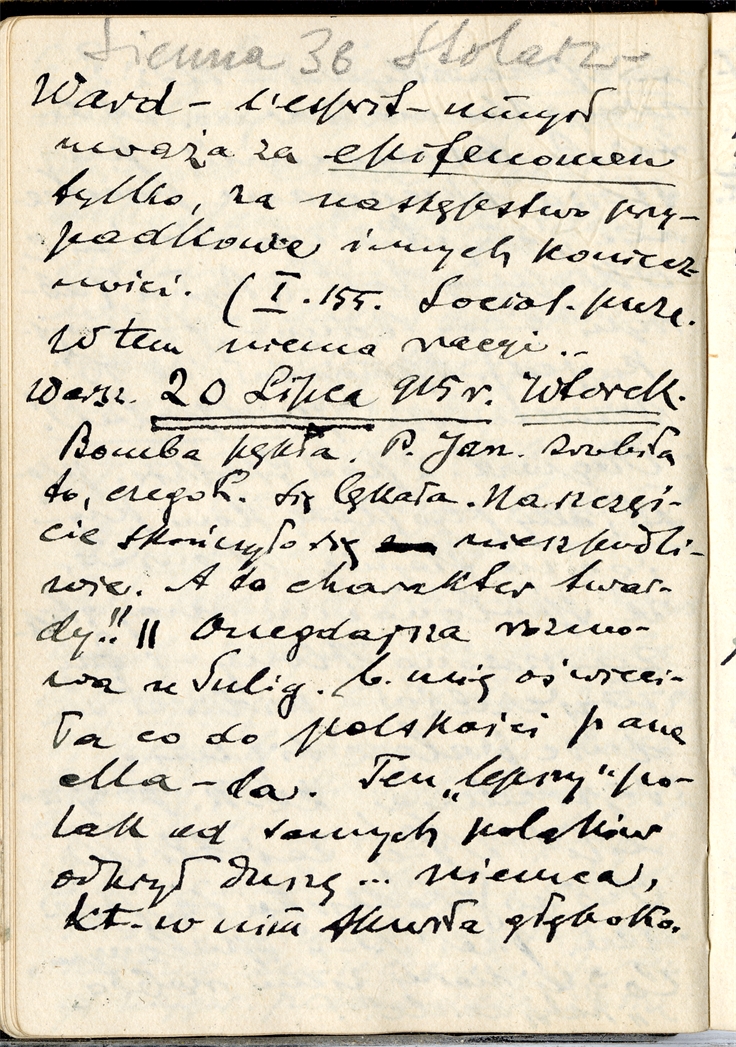 Sienna 36 Stolarz
Ward – l'esprit – umysł
uważa za epifenomen
tylko, za następstwo przy-
padkowe innych koniecz-
ności. (I. 155. Sociol. pure.
W tem niema racyi..
Warsz. 20 Lipca 915 r. Wtorek.
Bomba pękła. P. Jan. zrobiła
to, czegoś. się lękała. Na szczęś-
cie skończyło się nieszkodli-
wie. A to charakter twar-
dy!! || Onegdajsza rozmo-
wa u Sulig. b. mię oświeci-
ła co do polskości pana
Ma-ła. Ten „lepszy" po-
lak od samych polaków
odkrył duszę... niemca,
kt. w nim tkwiła głęboko.